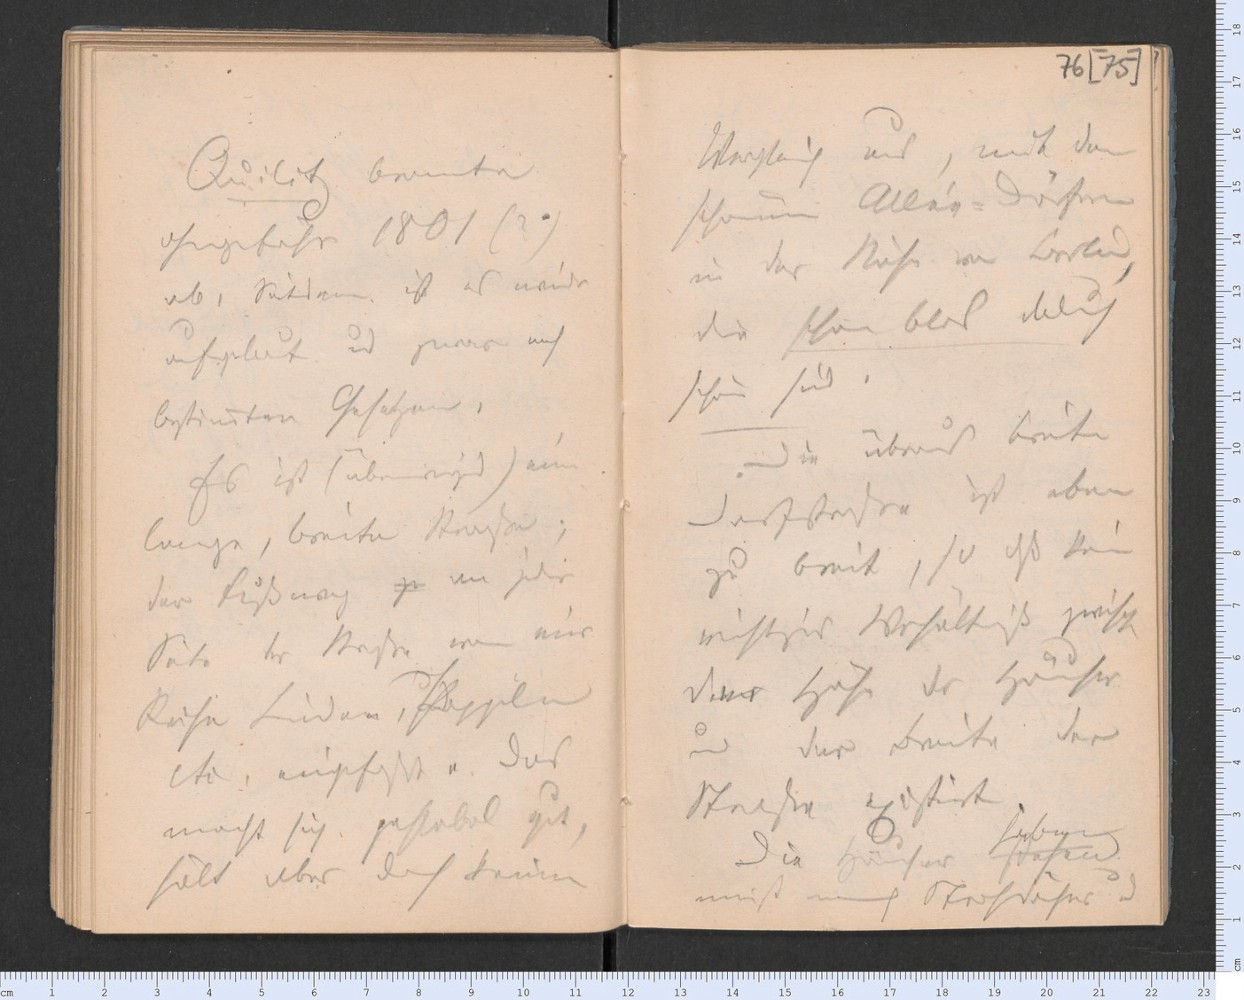 Quilitz brannte
ohngefähr 1801 (?)
ab, seitdem ist es wieder
aufgebaut und zwar nach
bestimmten Gesetzen.
Es ist (überwiegend) eine
lange, breite Straße;
der Fußweg an jeder
Seite der Straße von einer
Reihe Linden, Pappeln
etc. eingefaßt. Das
macht sich passabel gut,
hält aber doch keinen
76[75]
Vergleich aus, mit den
schönen Alleen-Dörfern
in der Nähe von Berlin,
die schon blos dadurch
schön sind.
Die überaus breite
Dorfstraße ist eben
zu breit, so daß kein
richtiges Verhältniß zwischen
der Höhe der Häuser
und der Breite der
Straße existirt.
Die Häuser haben
meist noch Strohdächer und